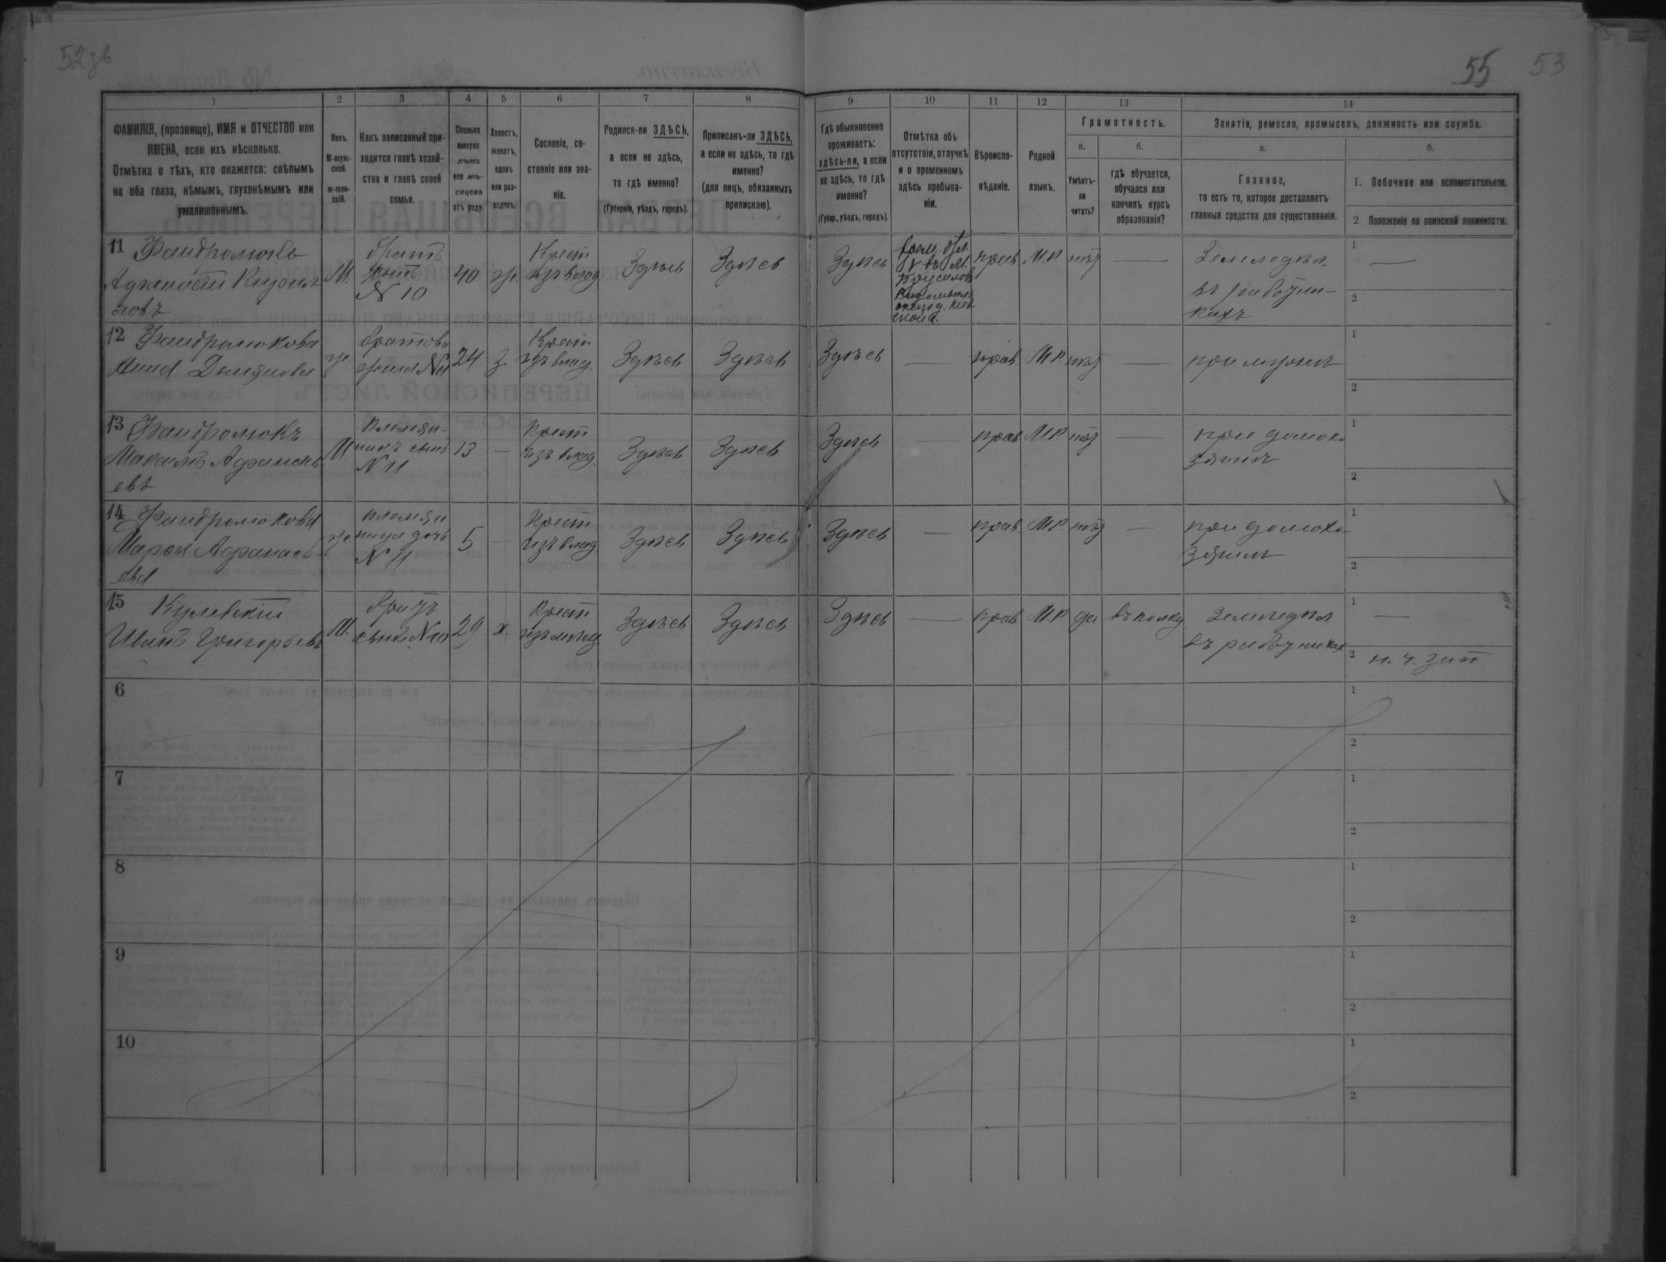 52зв
55 53
1 2 3 4 5 6 7 8 9 10 11 12 13 14
ФАМИЛІЯ, (прозвище), ИМЯ и ОТЧЕСТВО или
ИМЕНА, если ихъ нѣсколько.
Отмѣтка о тѣхъ, кто окажется: слѣпымъ
на оба глаза, нѣмымъ, глухонѣмымъ или
умалишеннымъ.
Полъ.
М-муж-
ской.
Ж-жен-
скій.
Какъ записанный при-
ходится главѣ хозяй-
ства и главѣ своей
семьи.
Сколько
минуло
лѣтъ
или мѣ-
сяцевъ
отъ роду.
Холостъ,
женатъ,
вдовъ
или раз-
веденъ.
Сословіе, со-
стояніе или зва-
ніе.
Родился-ли ЗДѢСЬ,
а если не здѣсь,
то гдѣ именно?
(Губернія, уѣздъ, городъ).
Приписанъ-ли ЗДѢСЬ,
а если не здѣсь, то гдѣ
именно?
(для лицъ, обязанныхъ
припискою).
Гдѣ обыкновенно
проживаетъ:
здѣсь-ли, а если
не здѣсь, то гдѣ
именно?
(Губер., уѣздъ, городъ).
Отмѣтка объ
отсутствіи, отлучкѣ
и о временномъ
здѣсь пребыва-
ніи.
Вѣроиспо-
вѣданіе.
Родной
языкъ.
Грамотность.
а.
Умѣетъ-
ли
читать?
б.
гдѣ обучается,
обучался или
кончилъ курсъ
образованія?
Занятіе, ремесло, промыселъ, должность или служба.
а.
Главное,
то есть то, которое доставляетъ
главныя средства для существованія.
б.
1. Побочное или вспомогательное.
2 Положеніе по воинской повинности.
11 Фандролюкъ
Афанасій Кирил
ловъ
М.
братъ
N 10
40
ж.
Крест
изъ влад
Здѣсь
Здѣсь
Здѣсь
прав
М.Р.
нѣт
—
Земледѣл.
въ работни-
кахъ
1 —
2
12 Фандролюкова
Анна Демянова
ж.
братова
N 11
24
з
Крест
изъ влад.
Здѣсь
Здѣсь
Здѣсь
—
прав.
М.Р.
нѣт
—
при мужѣ
1
2
13 Фандролюкъ
Макаръ Афанась
евъ
М
племян-
никъ сынъ
N 11
13
—
Крест
изъ влад
Здѣсь
Здѣсь
Здѣсь
—
прав
М.Р.
нѣт
—
при домохо
зяинѣ
1
2
14 Фандролюкова
Марфа Афанась
ева
ж
племян
ница дочь
N 11
5
—
Крест
изъ влад
Здѣсь
Здѣсь
Здѣсь
—
прав
М.Р.
нѣт
—
при домохо
зяинѣ
1
2
15 Кулевскій
Иванъ Григорьевъ
М.
N 10
29
х
Крест
Здѣсь
Здѣсь
Здѣсь
—
прав
М.Р.
да
въ полку
Земледѣл
въ работникахъ
1 —
2 н. ч. зап.
6 1
2
7 1
2
8 1
2
9 1
2
10 1
2